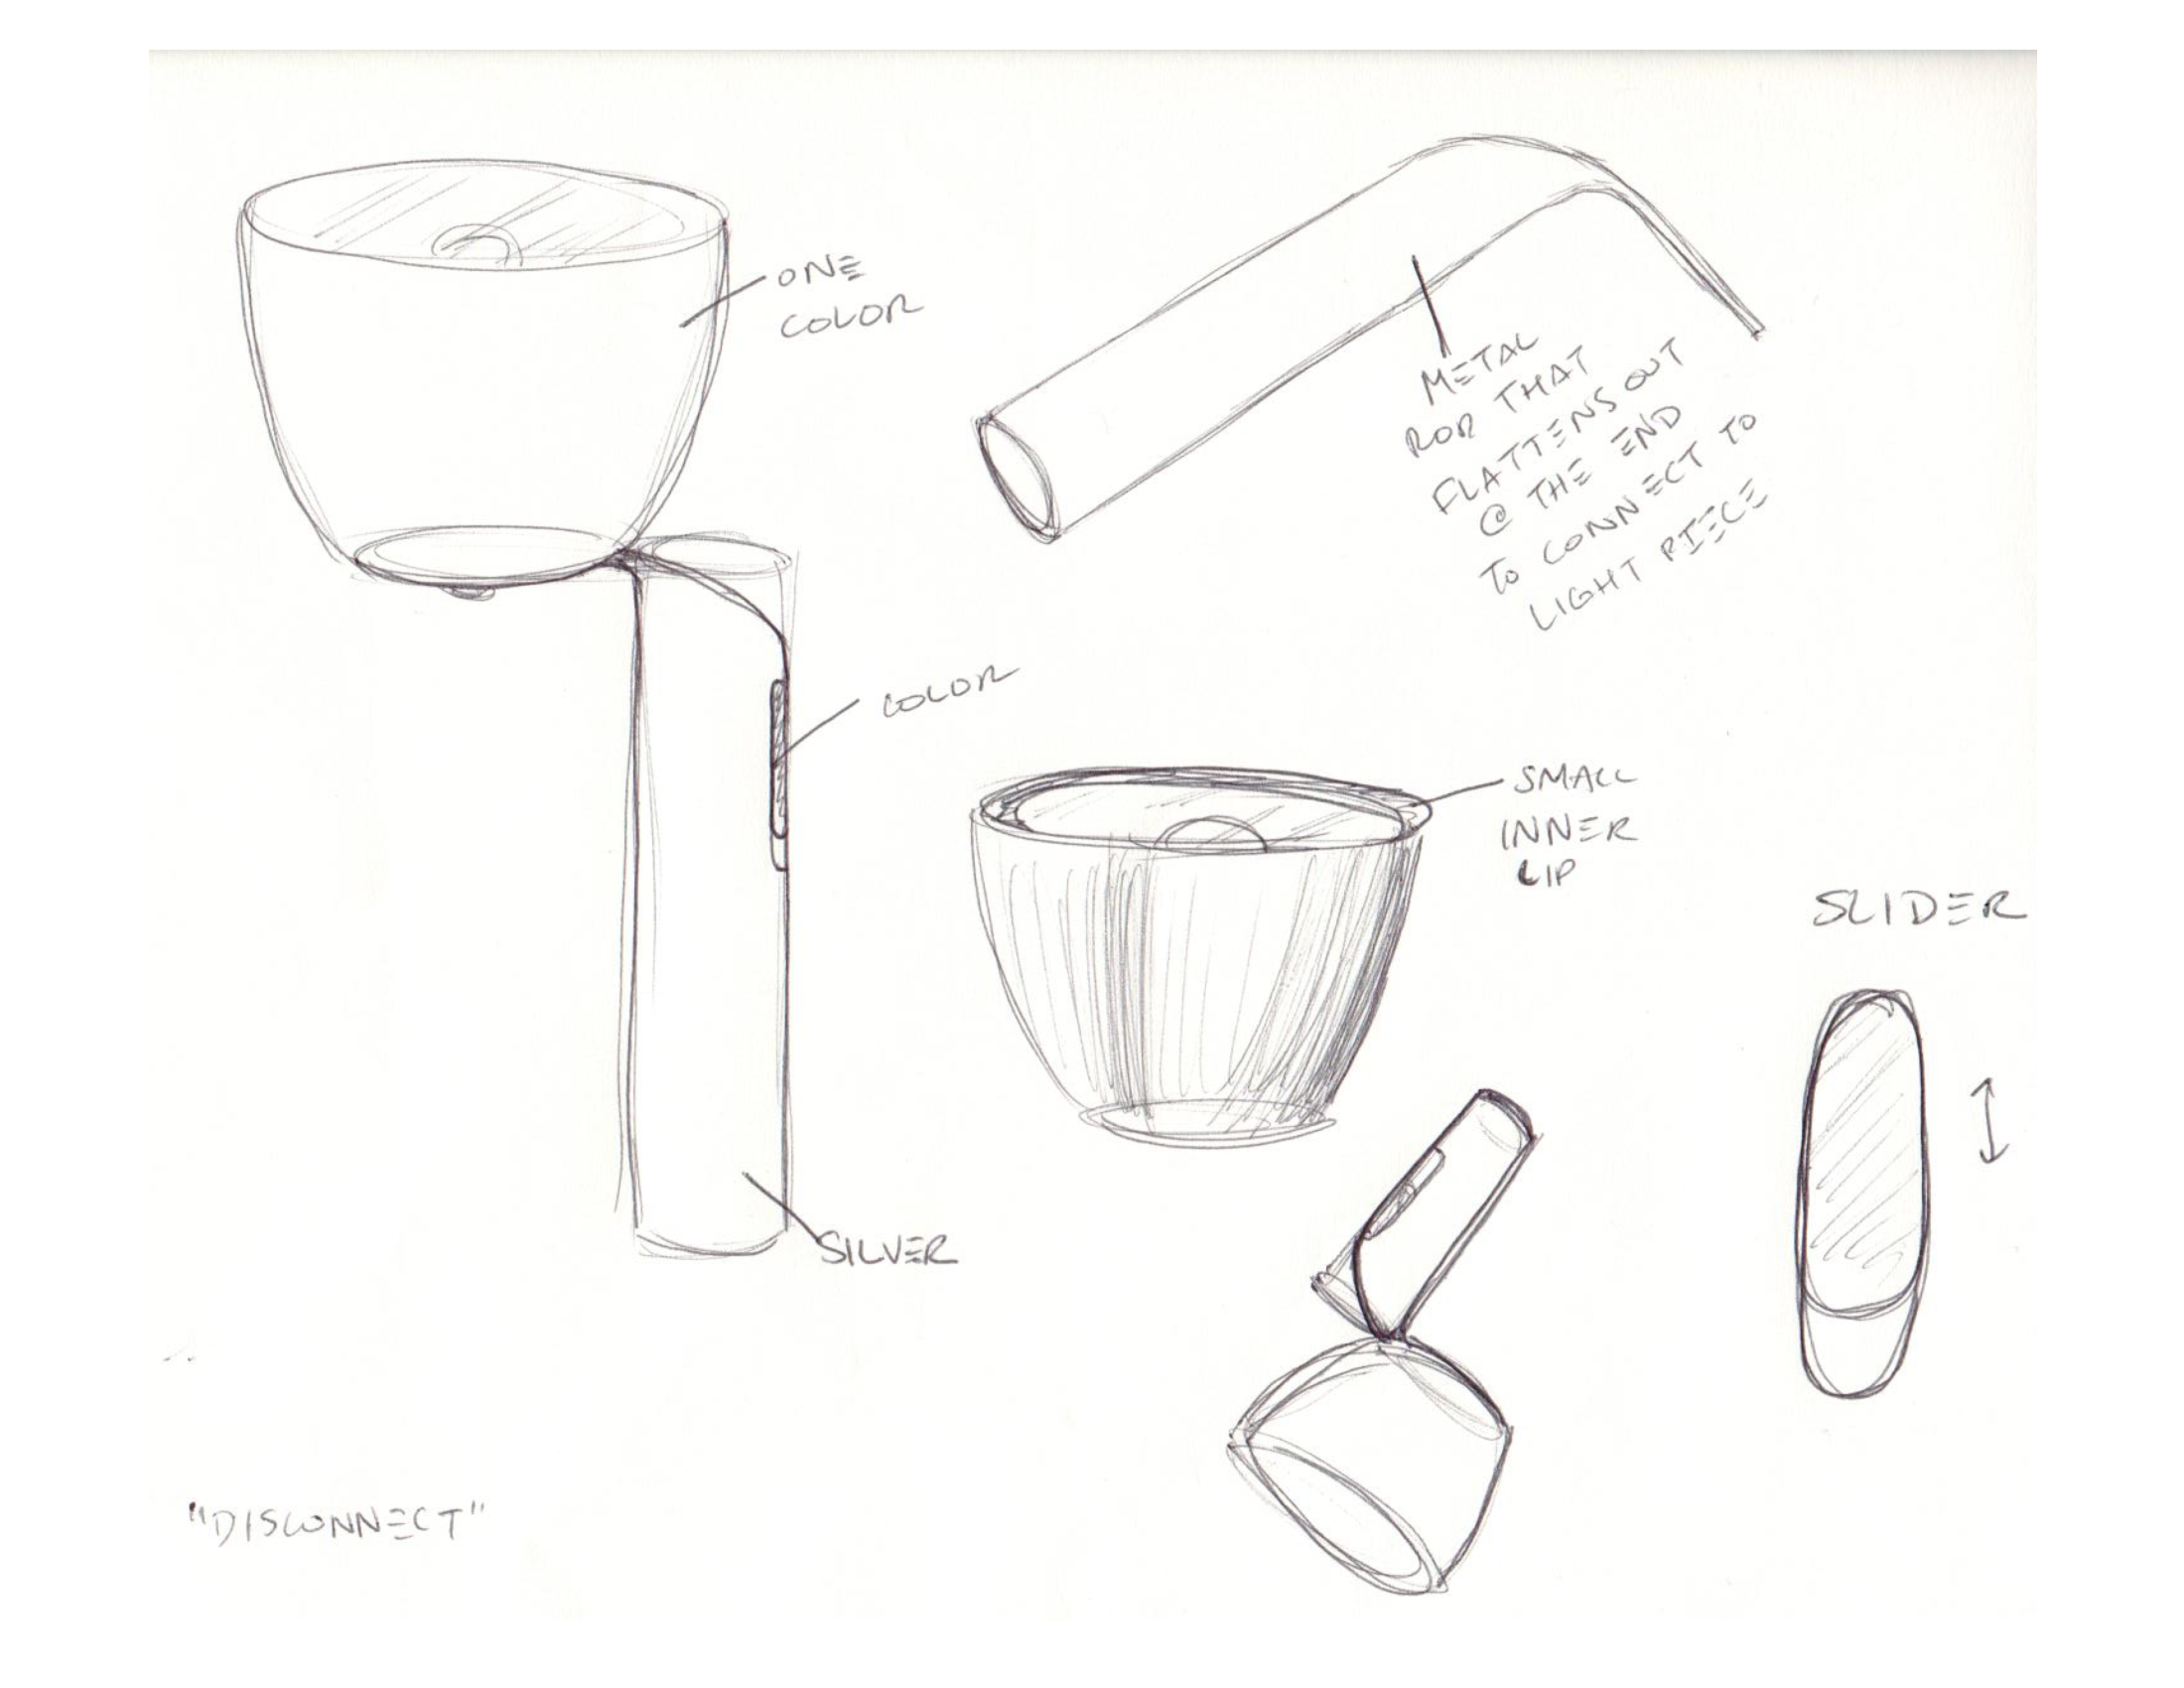 ONE
COLOR
METAL
ROD THAT
FLATTENS OUT
@ THE END
TO CONNECT TO
LIGHT PIECE
COLOR
SMALL
INNER
LIP
SLIDER
SILVER
"DISCONNECT"